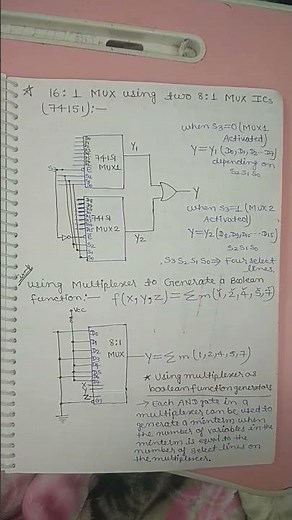 * 16:1 MUX using two 8:1 MUX ICs
(74151):-
when S3=0 (MUX1
Activated)
Y=Y1 (D0, D1, D2 - D7)
depending on
S2 S1 S0
74151
MUX1
Y1
S3
Y
when S3=1 (MUX2
Activated)
74151
MUX2
Y2
Y=Y2
S2 S1 S0
S3 S2 S1 S0 => Four select
lines
using Multiplexer to Generate a Boolean
function:- f(x,y,z)=Σm(1,2,4,5,7)
Vcc
8:1
MUX
Y=Σm(1,2,4,5,7)
* Using multiplexer as
boolean function generators
→ Each AND gate in a
multiplexer can be used to
generate a minterm when
the number of variables in the
minterm is equal to the
number of select lines on
the multiplexer.
X
Y
Z